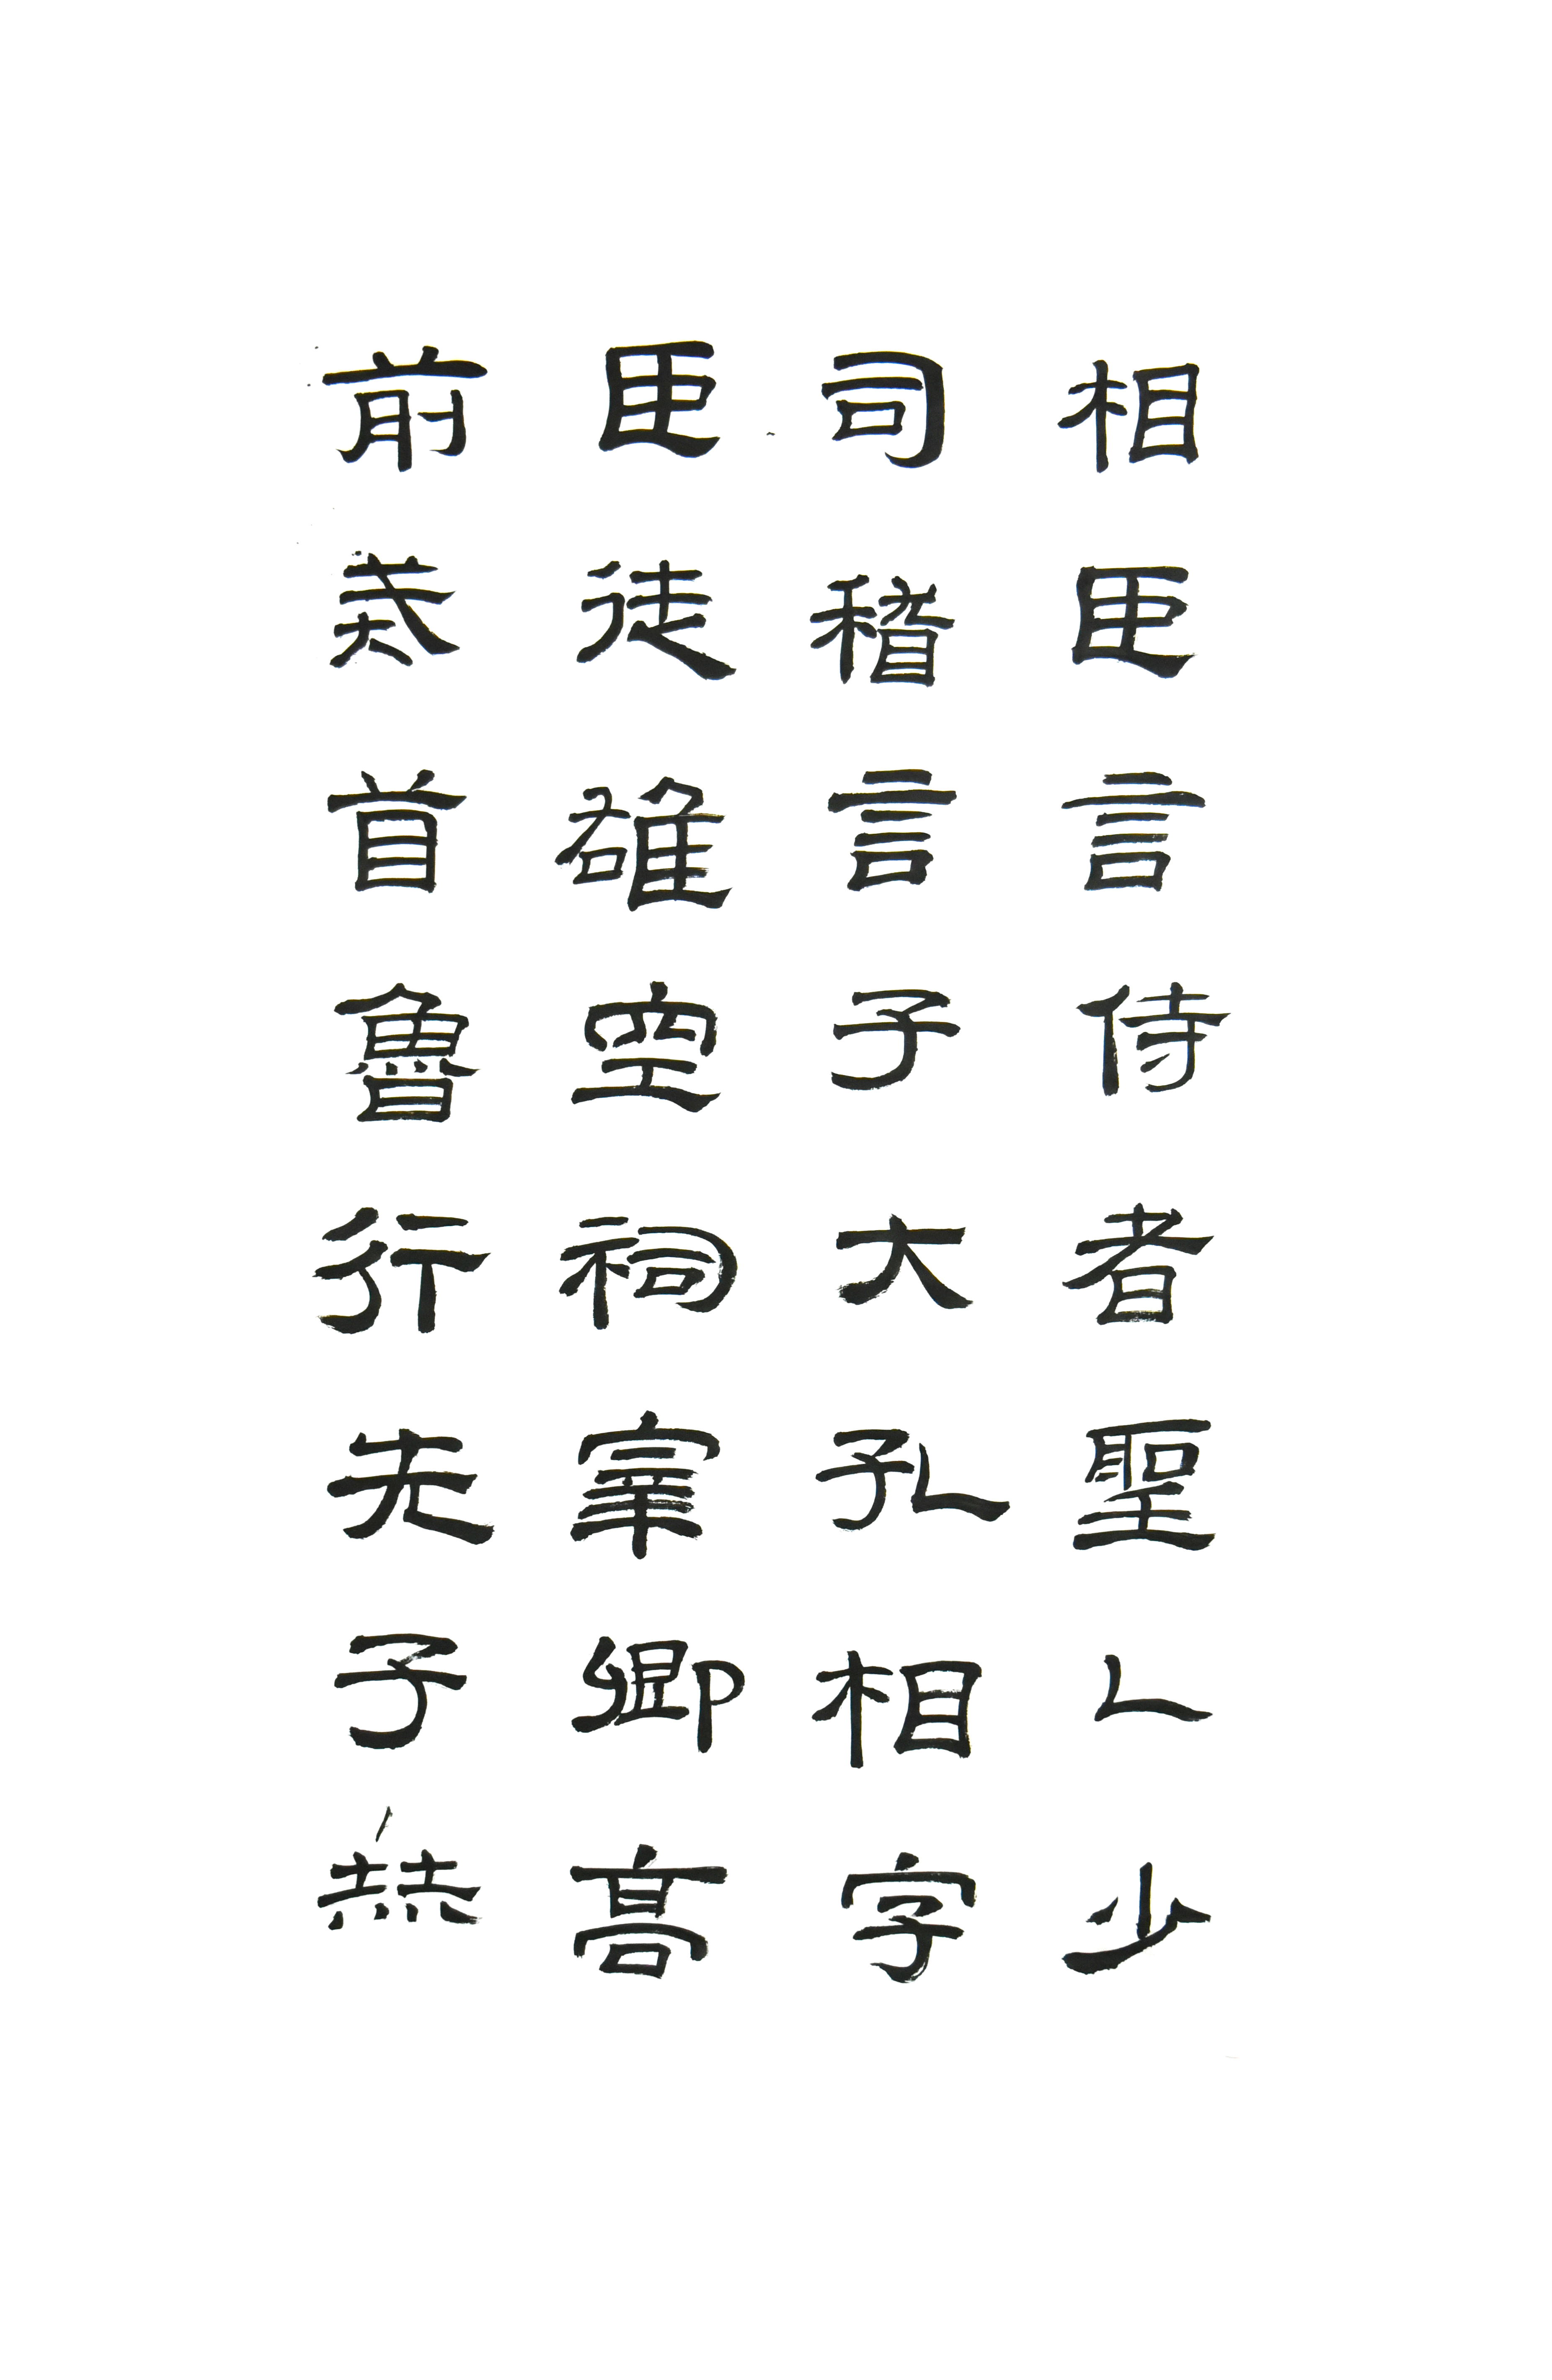 相臣言侍者聖少
司稽言子大孔相字
臣徒雄空祠宰卿高
前首魯行先子